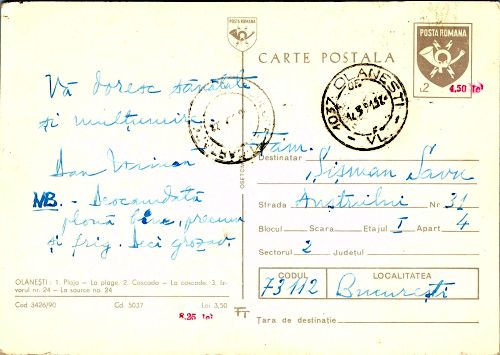 POSTA ROMANA
CARTE POSTALA
POSTA ROMANA
2
4,50 lei
1037 OLANESTI
VL.
Vă doresc sănătate
și mulțumiri
Dan
NB. - Deocamdată
plouă bine, precum
și frig. Deci grozav.
Fam.
Destinatar Sisman Savu
Strada Austrului Nr 31
Blocul Scara Etajul I Apart 4
Sectorul 2 Județul
CODUL LOCALITATEA
73112 București
Țara de destinație
OLĂNEȘTI: 1. Plaja — La plage. 2. Cascada — La cascade. 3. Iz-
vorul nr. 24 — La source no. 24
Cod 3426/90 Cd. 5037 Lei 3,50
8,25 lei